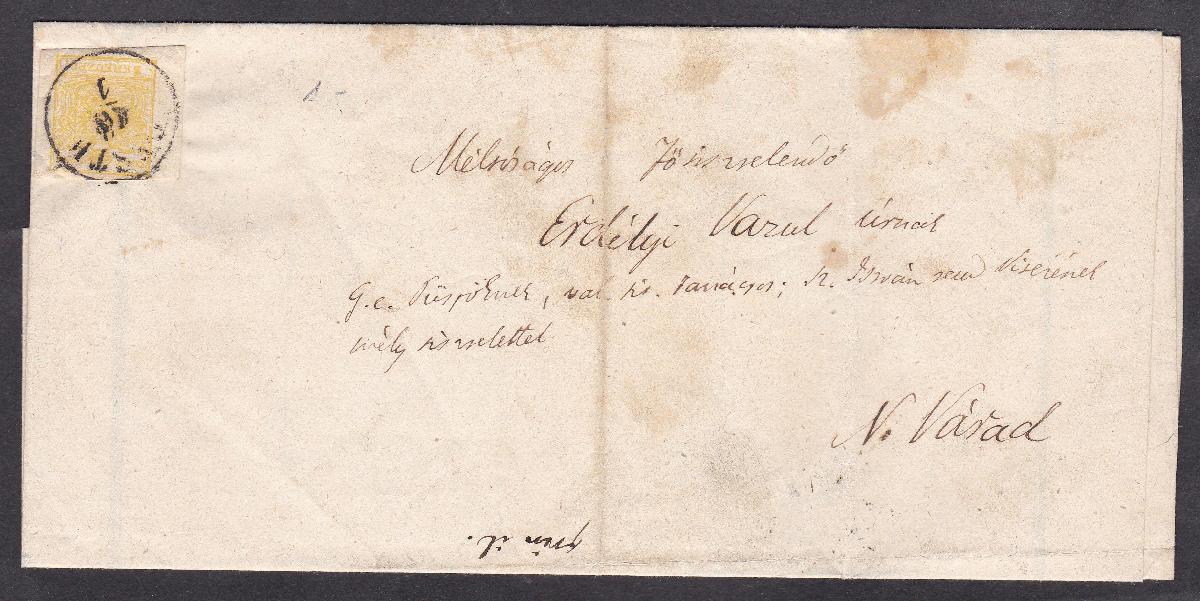 PESTH
Méltóságos Főtisztelendő
Erdélyi Vazul úrnak
G. e. Püspöknek, val. tit. tanácsos; sz. István rend vitézének
mély tisztelettel
N. Várad